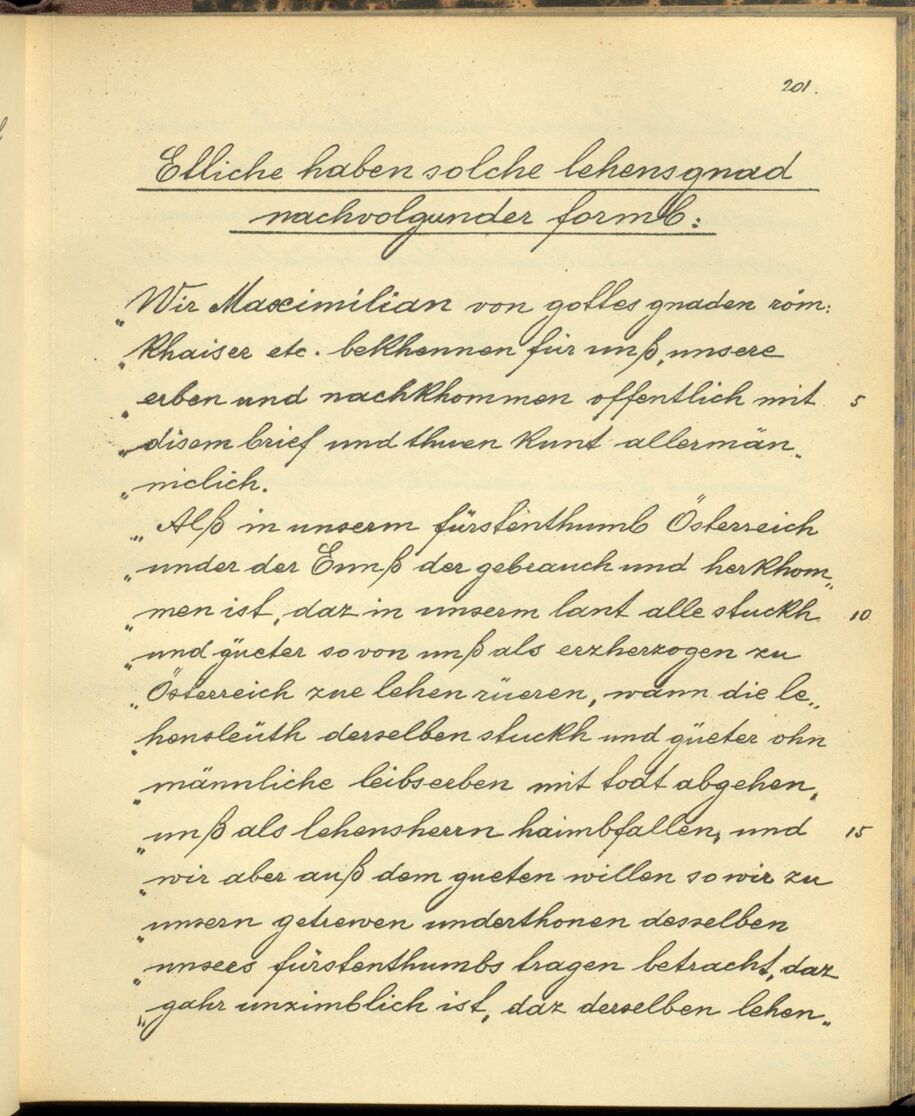 201.
Etliche haben solche lehensgnad
nachvolgunder formb:
„Wir Maximilian von gottes gnaden röm:
„khaiser etc. bekhennen für unß, unsere
„erben und nachkhommen offentlich mit 5
„disem brief und thuen kunt allermän„
„niclich.
„Alß in unserm fürstenthumb Österreich
„under der Ennß der gebrauch und herkhom„
„men ist, daz in unserm lant alle stuckh 10
„und güeter so von unß als erzherzogen zu
„Österreich zue lehen rüeren, wann die le„
„hensleüth derselben stuckh und güeter ohn
„männliche leibserben mit todt abgehen,
„unß als lehensherrn haimbfallen, und 15
„wir aber auß dem gueten willen so wir zu
„unsern getrewen underthonen desselben
„unsers fürstenthumbs tragen betracht, daz
„gahr unzimblich ist, daz derselben lehen„